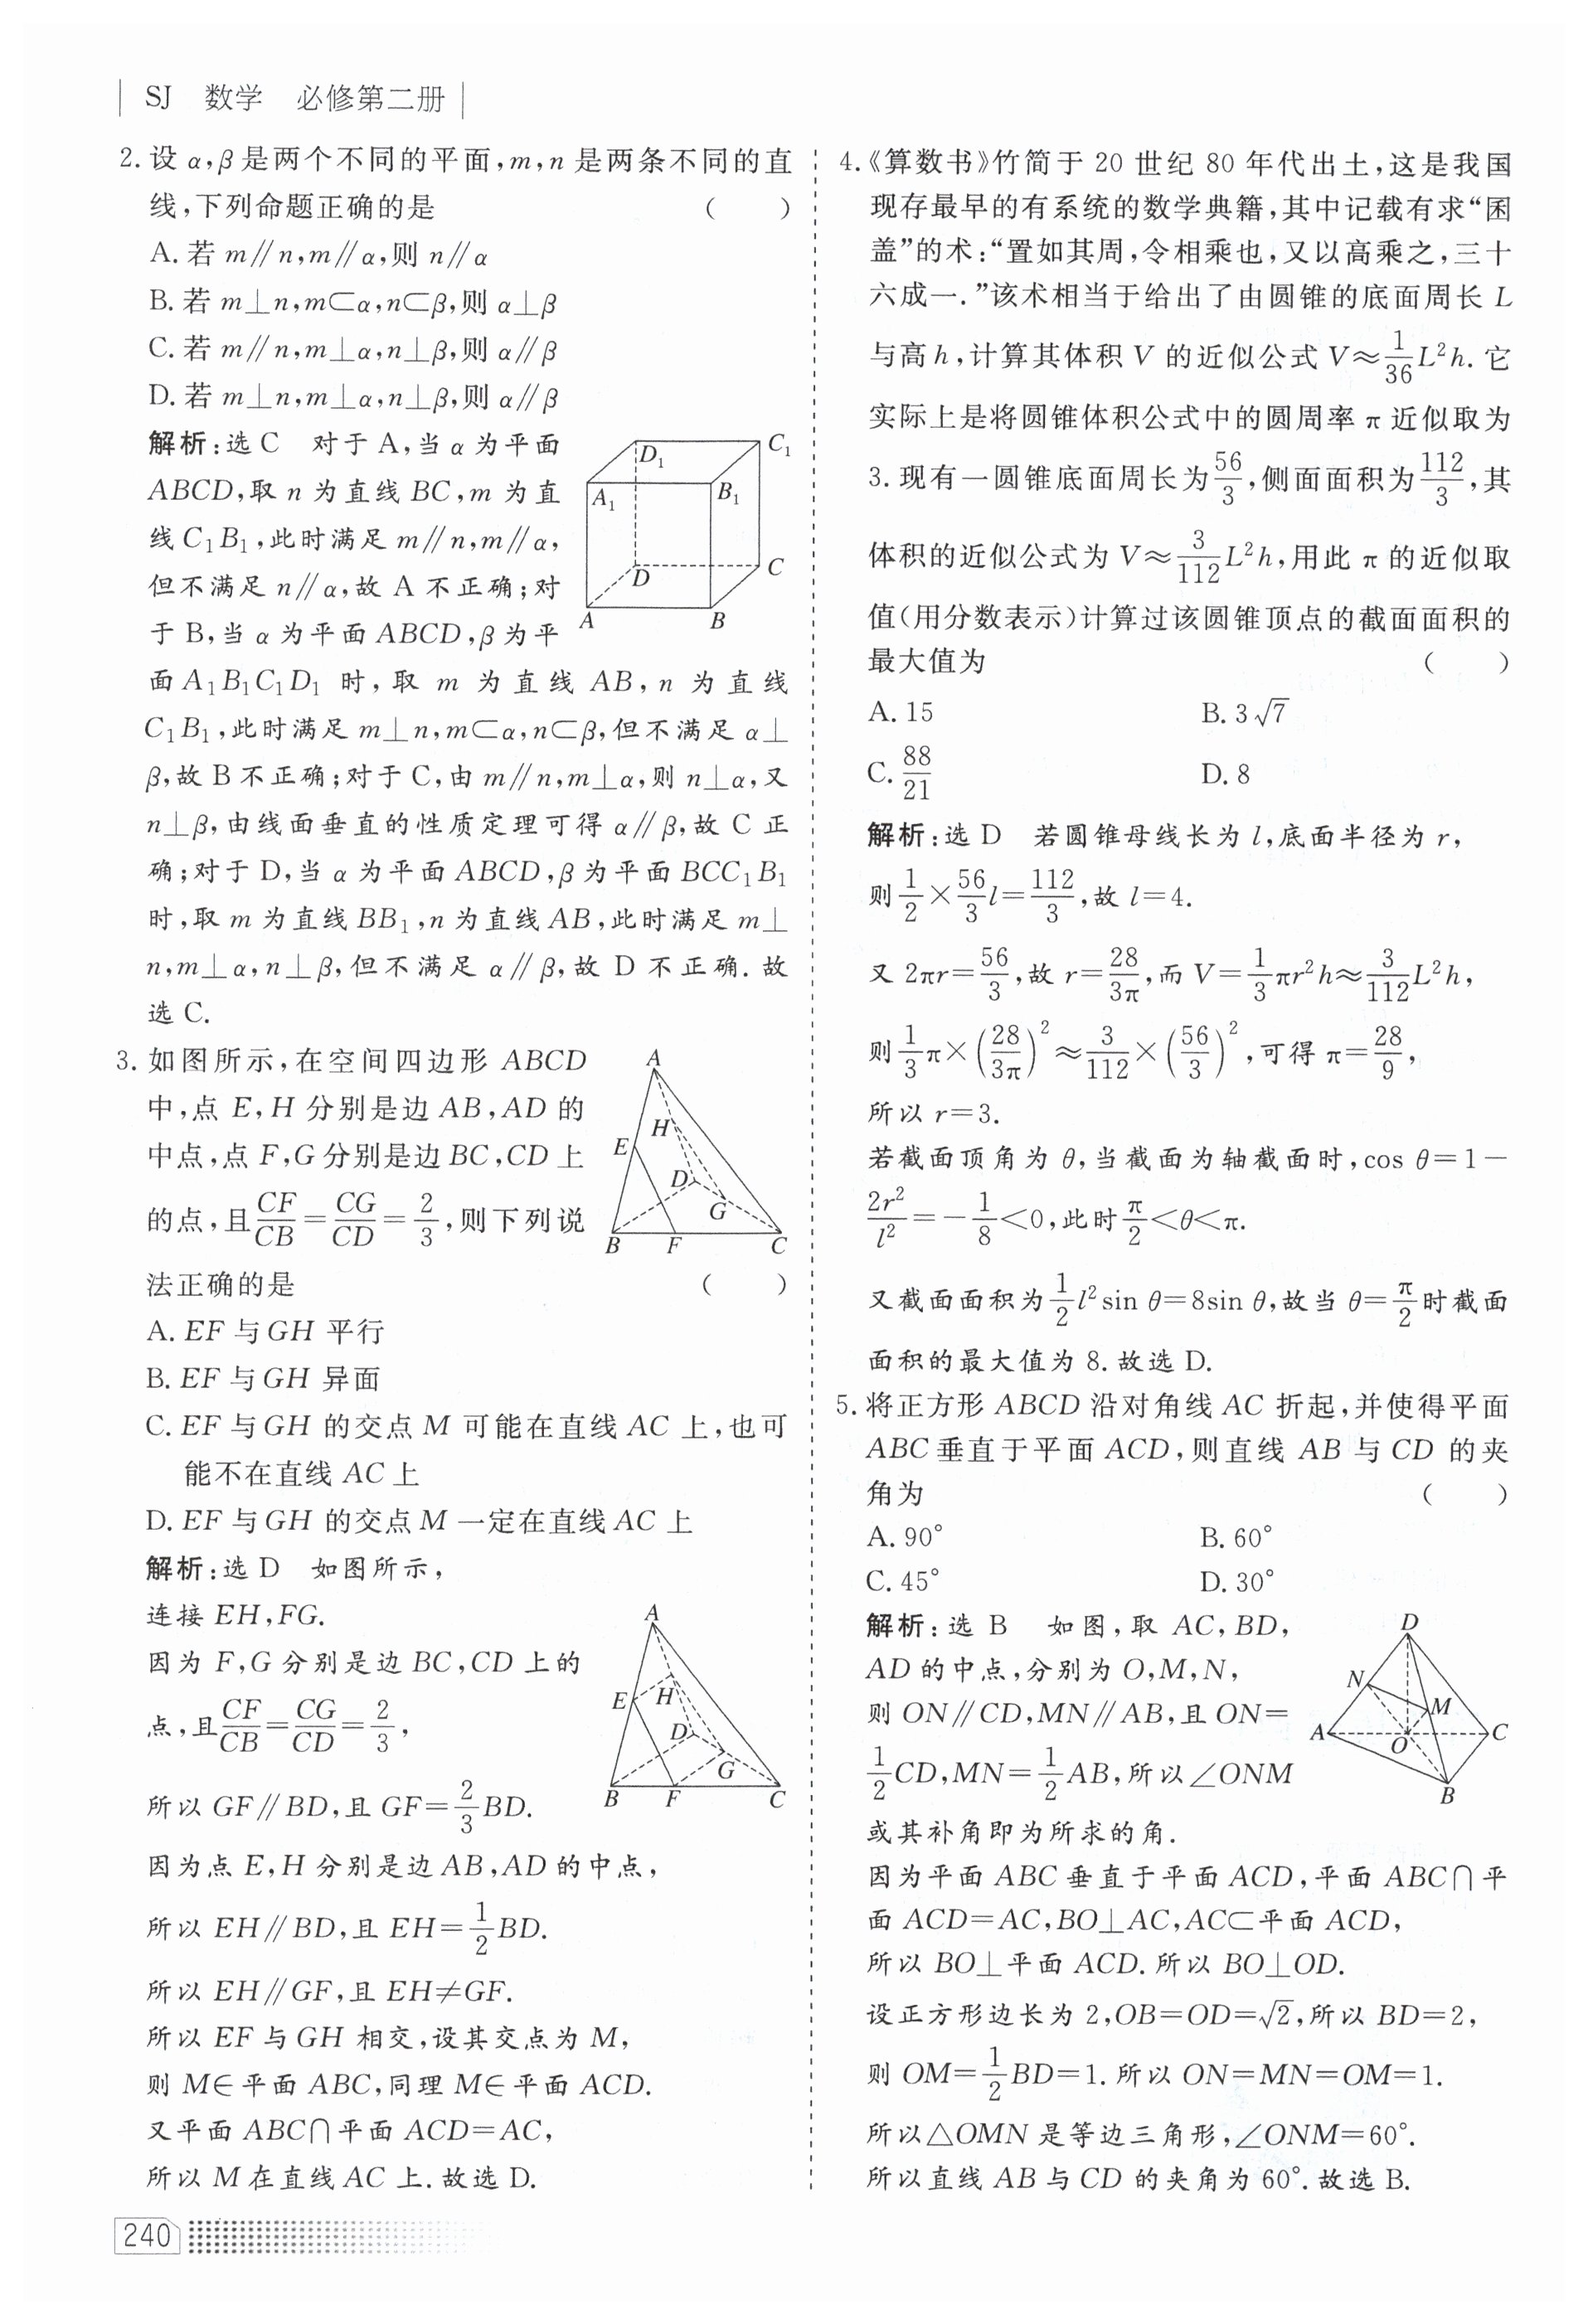 SJ 数学 必修第二册
2. 设 α,β是两个不同的平面,m,n 是两条不同的直
线,下列命题正确的是 ( )
A. 若 m∥n,m∥α,则 n∥α
B. 若 m⊥n,m⊂α,n⊂β,则 α⊥β
C. 若 m∥n,m⊥α,n⊥β,则 α∥β
D. 若 m⊥n,m⊥α,n⊥β,则 α∥β
解析:选 C 对于 A,当 α 为平面
ABCD,取 n 为直线 BC,m 为直
线 C₁B₁,此时满足 m∥n,m∥α,
但不满足 n∥α,故 A 不正确;对
于 B,当 α 为平面 ABCD,β 为平
面 A₁B₁C₁D₁ 时,取 m 为直线 AB,n 为直线
C₁B₁,此时满足 m⊥n,m⊂α,n⊂β,但不满足 α⊥
β,故 B 不正确;对于 C,由 m∥n,m⊥α,则 n⊥α,又
n⊥β,由线面垂直的性质定理可得 α∥β,故 C 正
确;对于 D,当 α 为平面 ABCD,β 为平面 BCC₁B₁
时,取 m 为直线 BB₁,n 为直线 AB,此时满足 m⊥
n,m⊥α,n⊥β,但不满足 α∥β,故 D 不正确. 故
选 C.
D₁ C₁
A₁ B₁
D C
A B
3. 如图所示,在空间四边形 ABCD
中,点 E,H 分别是边 AB,AD 的
中点,点 F,G 分别是边 BC,CD 上
的点,且 CF/CB = CG/CD = 2/3,则下列说
法正确的是 ( )
A
H
E
D
G
B F C
A. EF 与 GH 平行
B. EF 与 GH 异面
C. EF 与 GH 的交点 M 可能在直线 AC 上,也可
能不在直线 AC 上
D. EF 与 GH 的交点 M 一定在直线 AC 上
解析:选 D 如图所示,
连接 EH,FG.
因为 F,G 分别是边 BC,CD 上的
点,且 CF/CB = CG/CD = 2/3,
所以 GF∥BD,且 GF=2/3 BD.
A
E H
D
G
B F C
因为点 E,H 分别是边 AB,AD 的中点,
所以 EH∥BD,且 EH=1/2 BD.
所以 EH∥GF,且 EH≠GF.
所以 EF 与 GH 相交,设其交点为 M,
则 M∈平面 ABC,同理 M∈平面 ACD.
又平面 ABC∩平面 ACD=AC,
所以 M 在直线 AC 上. 故选 D.
4.《算数书》竹简于 20 世纪 80 年代出土,这是我国
现存最早的有系统的数学典籍,其中记载有求“困
盖”的术:“置如其周,令相乘也,又以高乘之,三十
六成一.”该术相当于给出了由圆锥的底面周长 L
与高 h,计算其体积 V 的近似公式 V≈1/36 L²h. 它
实际上是将圆锥体积公式中的圆周率 π 近似取为
3. 现有一圆锥底面周长为 56/3,侧面面积为 112/3,其
体积的近似公式为 V≈3/112 L²h,用此 π 的近似取
值(用分数表示)计算过该圆锥顶点的截面面积的
最大值为 ( )
A. 15 B. 3√7
C. 88/21 D. 8
解析:选 D 若圆锥母线长为 l,底面半径为 r,
则 1/2×56/3 l=112/3,故 l=4.
又 2πr=56/3,故 r=28/3π,而 V=1/3 πr²h≈3/112 L²h,
则 1/3 π×(28/3π)²≈3/112×(56/3)²,可得 π=28/9,
所以 r=3.
若截面顶角为 θ,当截面为轴截面时,cos θ=1−
2r²/l²=−1/8<0,此时 π/2<θ<π.
又截面面积为 1/2 l²sin θ=8sin θ,故当 θ=π/2 时截面
面积的最大值为 8. 故选 D.
5. 将正方形 ABCD 沿对角线 AC 折起,并使得平面
ABC 垂直于平面 ACD,则直线 AB 与 CD 的夹
角为 ( )
A. 90° B. 60°
C. 45° D. 30°
解析:选 B 如图,取 AC,BD,
AD 的中点,分别为 O,M,N,
则 ON∥CD,MN∥AB,且 ON=
1/2 CD,MN=1/2 AB,所以∠ONM
或其补角即为所求的角.
D
N
M
A O C
B
因为平面 ABC 垂直于平面 ACD,平面 ABC∩平
面 ACD=AC,BO⊥AC,AC⊂平面 ACD,
所以 BO⊥平面 ACD. 所以 BO⊥OD.
设正方形边长为 2,OB=OD=√2,所以 BD=2,
则 OM=1/2 BD=1. 所以 ON=MN=OM=1.
所以△OMN 是等边三角形,∠ONM=60°.
所以直线 AB 与 CD 的夹角为 60°. 故选 B.
240